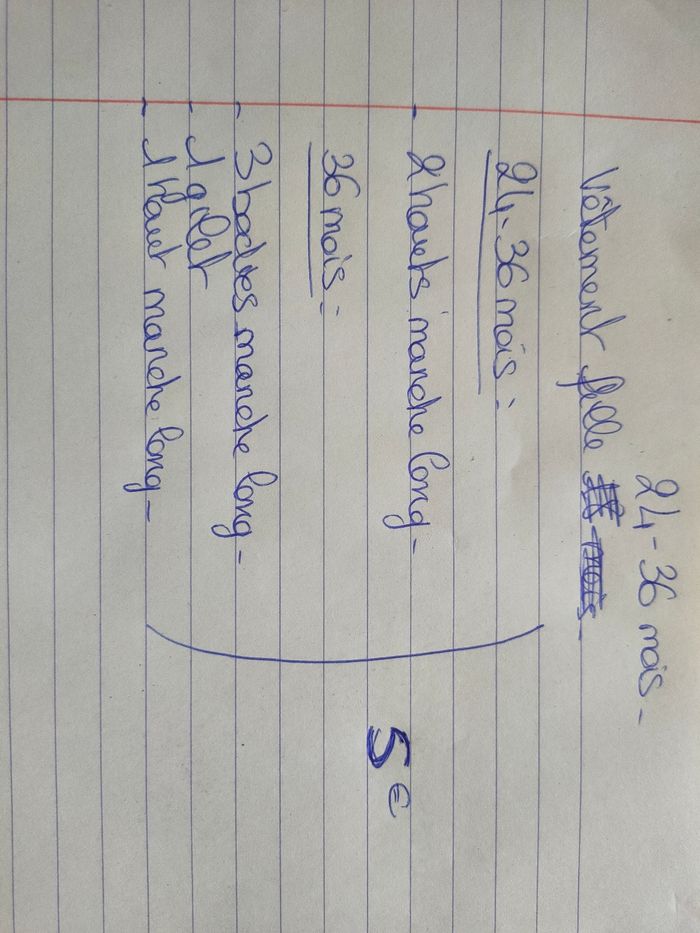 24-36 mois-
Vêtement fille
24-36 mois:
- 2 hauts manche long-
36 mois:
- 3 bodies manche long-
- 1 gilet
- 1 haut manche long-
5€